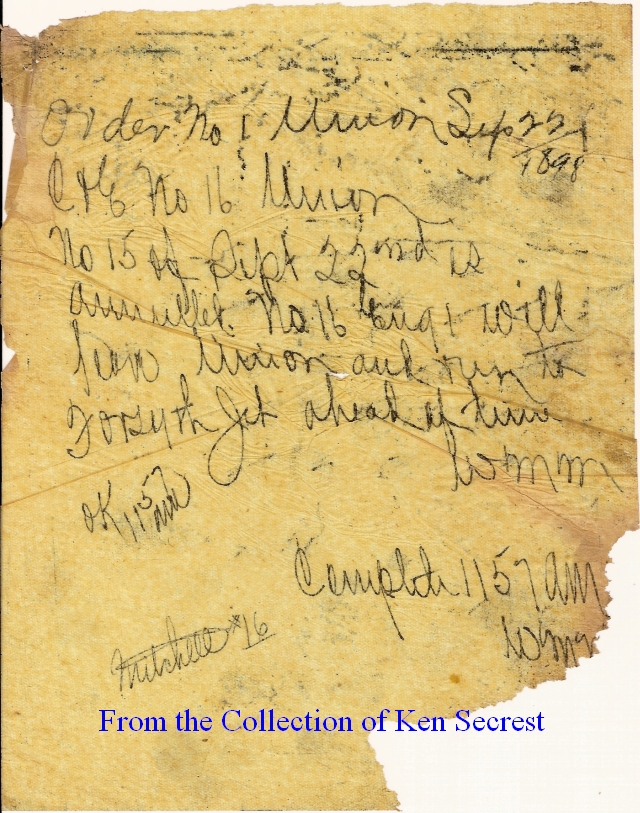 Order No 1 Union Sep 22
1898
C & E No 16 Union
No 15 of Sept 22nd is
annulled. No 16 Eng 1 will
leave Union and run to
Forsyth Jct ahead of time
WMM
OK 1157 AM
Complete 1157 AM
WMM
Mitchell #16
From the Collection of Ken Secrest